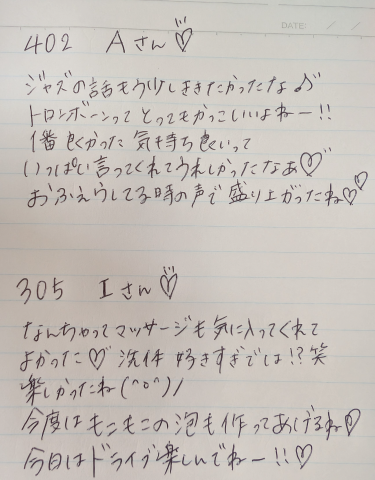 DATE: / /
402 Aさん♡
ジャズの話もう少しききたかったな♪
トロンボーンってとってもかっこいいよねー!!
1番良かった 気持ち良いって
いっぱい言ってくれてうれしかったなあ♡
おふぇらしてる時の声で盛り上がったね♡♡
305 Iさん♡
なんちゃってマッサージも気に入ってくれて
よかった♡ 洗体 好きすぎでは!? 笑
楽しかったね(^o^)/
今度はもこもこの泡も作ってあげるね♡
今日はドライブ楽しんでねー!!♡